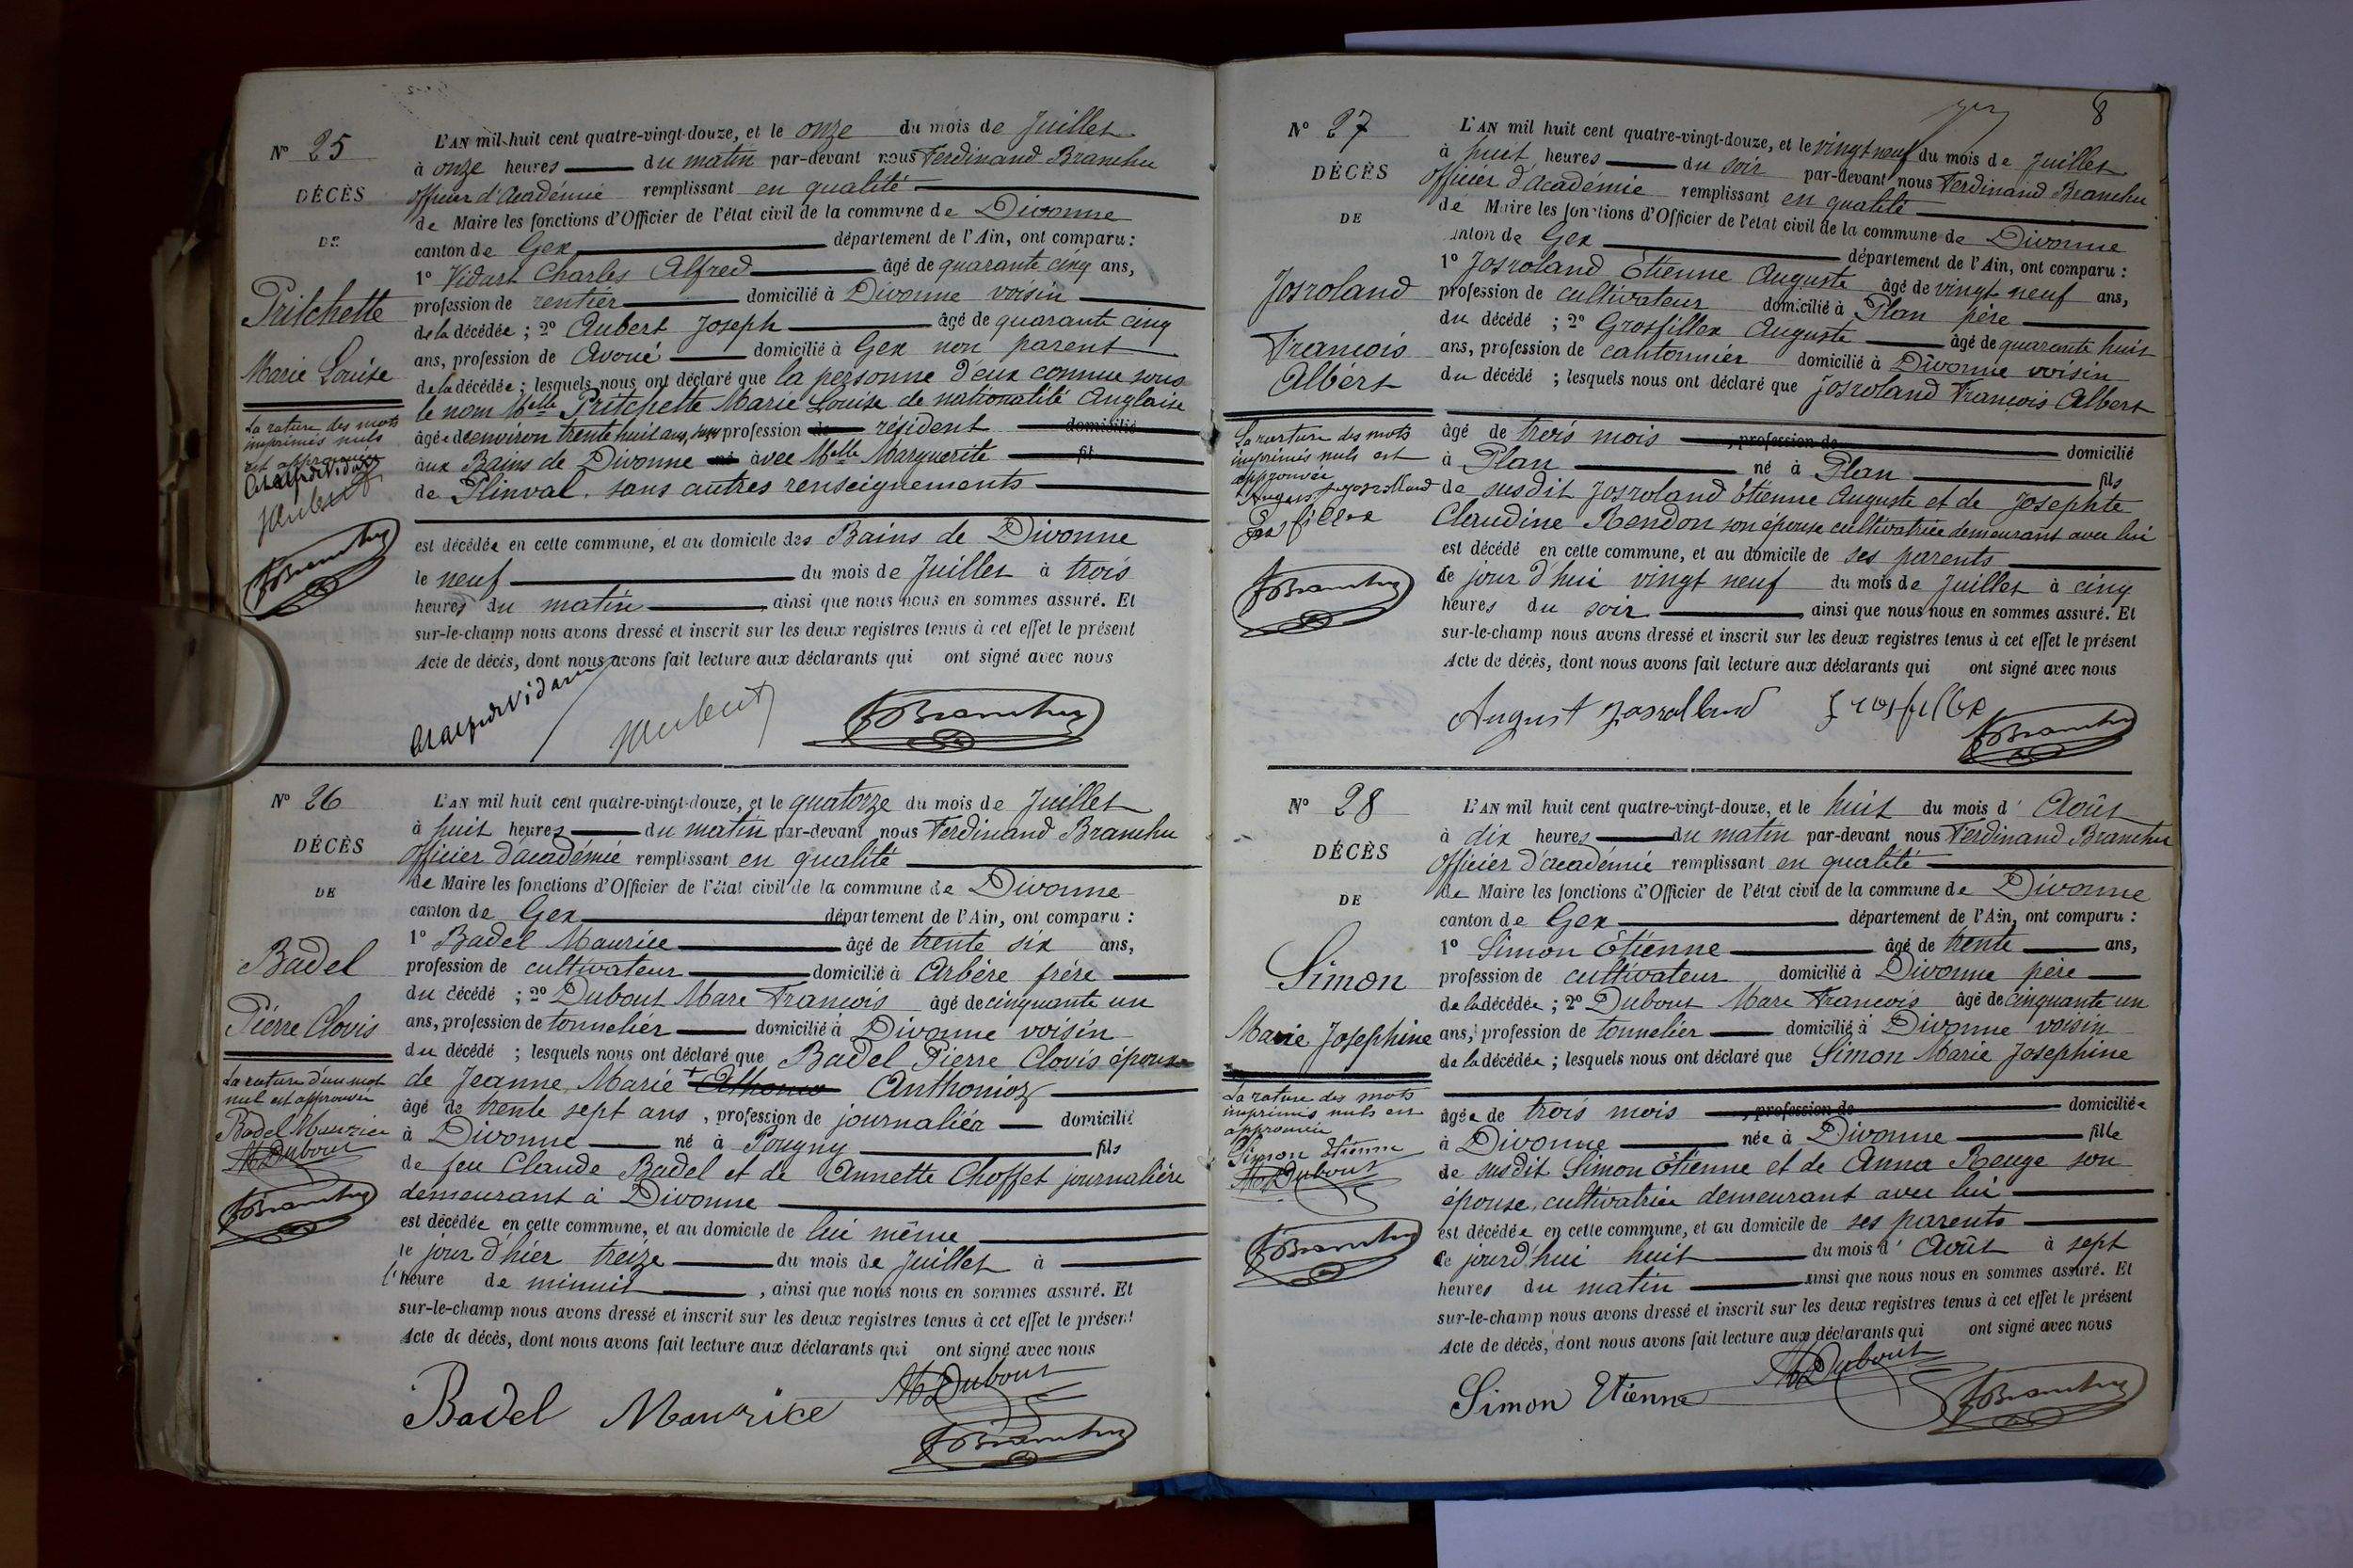 N° 25
DÉCÈS
DE
Pritchette
Marie Louise
La rature des mots
imprimés nuls
est approuvée
L'AN mil-huit cent quatre-vingt-douze, et le onze du mois de Juillet
à onze heures du matin par-devant nous Ferdinand Branchu
officier d'académie remplissant en qualité
de Maire les fonctions d'Officier de l'état civil de la commune de Divonne
canton de Gex département de l'Ain, ont comparu :
1° Vidart Charles Alfred âgé de quarante cinq ans,
profession de rentier domicilié à Divonne voisin
de la décédée ; 2° Aubert Joseph âgé de quarante cinq
ans, profession de Avoué domicilié à Gex non parent
de la décédée ; lesquels nous ont déclaré que la personne d'eux connue sous
le nom Melle Pritchette Marie Louise de nationalité Anglaise
âgée de environ trente huit ans, sans profession de résident domicilié
aux Bains de Divonne né avec Melle Marguerite fil
de Plinval. sans autres renseignements
est décédée en cette commune, et au domicile des Bains de Divonne
le neuf du mois de Juillet à trois
heures du matin ainsi que nous nous en sommes assuré. Et
sur-le-champ nous avons dressé et inscrit sur les deux registres tenus à cet effet le présent
Acte de décès, dont nous avons fait lecture aux déclarants qui ont signé avec nous
JAubert
FBranchu
N° 26
DÉCÈS
DE
Badel
Pierre Clovis
La rature d'un mot
nul est approuvée
Badel Maurice
MDubout
FBranchu
L'AN mil huit cent quatre-vingt-douze, et le quatorze du mois de Juillet
à huit heures du matin par-devant nous Ferdinand Branchu
officier d'académie remplissant en qualité
de Maire les fonctions d'Officier de l'état civil de la commune de Divonne
canton de Gex département de l'Ain, ont comparu :
1° Badel Maurice âgé de trente six ans,
profession de cultivateur domicilié à Arbère frère
du décédé ; 2° Dubout Marc François âgé de cinquante un
ans, profession de tonnelier domicilié à Divonne voisin
du décédé ; lesquels nous ont déclaré que Badel Pierre Clovis époux
de Jeanne Marie Anthonioz
âgé de trente sept ans, profession de journalier domicilié
à Divonne né à Pougny fils
de feu Claude Badel et de Annette Choffet journalière
demeurant à Divonne
est décédée en cette commune, et au domicile de lui même
le jour d'hier treize du mois de Juillet à
l'heure de minuit, ainsi que nous nous en sommes assuré. Et
sur-le-champ nous avons dressé et inscrit sur les deux registres tenus à cet effet le présent
Acte de décès, dont nous avons fait lecture aux déclarants qui ont signé avec nous
Badel Maurice MDubout
FBranchu
8
N° 27
DÉCÈS
DE
Josroland
François
Albert
La rature des mots
imprimés nuls est
approuvée
FBranchu
L'AN mil huit cent quatre-vingt-douze, et le vingt neuf du mois de Juillet
à huit heures du soir par-devant nous Ferdinand Branchu
officier d'académie remplissant en qualité
de Maire les fonctions d'Officier de l'état civil de la commune de Divonne
canton de Gex département de l'Ain, ont comparu :
1° Josroland Etienne Auguste âgé de vingt neuf ans,
profession de cultivateur domicilié à Plan père
du décédé ; 2° Grosfillex Auguste âgé de quarante huit
ans, profession de cantonnier domicilié à Divonne voisin
du décédé ; lesquels nous ont déclaré que Josroland François Albert
âgé de trois mois, profession de domicilié
à Plan né à Plan fils
de susdit Josroland Etienne Auguste et de Josephte
Claudine Rendon son épouse cultivatrice demeurant avec lui
est décédé en cette commune, et au domicile de ses parents
Ce jour d'hui vingt neuf du mois de Juillet à cinq
heures du soir ainsi que nous nous en sommes assuré. Et
sur-le-champ nous avons dressé et inscrit sur les deux registres tenus à cet effet le présent
Acte de décès, dont nous avons fait lecture aux déclarants qui ont signé avec nous
August josrolland grosfillex
FBranchu
N° 28
DÉCÈS
DE
Simon
Marie Josephine
La rature des mots
imprimés nuls est
approuvée
Simon Etienne
MDubout
FBranchu
L'AN mil huit cent quatre-vingt-douze, et le huit du mois d' Août
à dix heures du matin par-devant nous Ferdinand Branchu
officier d'académie remplissant en qualité
de Maire les fonctions d'Officier de l'état civil de la commune de Divonne
canton de Gex département de l'Ain, ont comparu :
1° Simon Etienne âgé de trente ans,
profession de cultivateur domicilié à Divonne père
de la décédée ; 2° Dubout Marc François âgé de cinquante un
ans, profession de tonnelier domicilié à Divonne voisin
de la décédée ; lesquels nous ont déclaré que Simon Marie Josephine
âgée de trois mois, profession de domiciliée
à Divonne née à Divonne fille
de susdit Simon Etienne et de Anna Reuge son
épouse, cultivatrice demeurant avec lui
est décédée en cette commune, et au domicile de ses parents
Ce jourd'hui huit du mois d' Août à sept
heures du matin ainsi que nous nous en sommes assuré. Et
sur-le-champ nous avons dressé et inscrit sur les deux registres tenus à cet effet le présent
Acte de décès, dont nous avons fait lecture aux déclarants qui ont signé avec nous
Simon Etienne MDubout
FBranchu